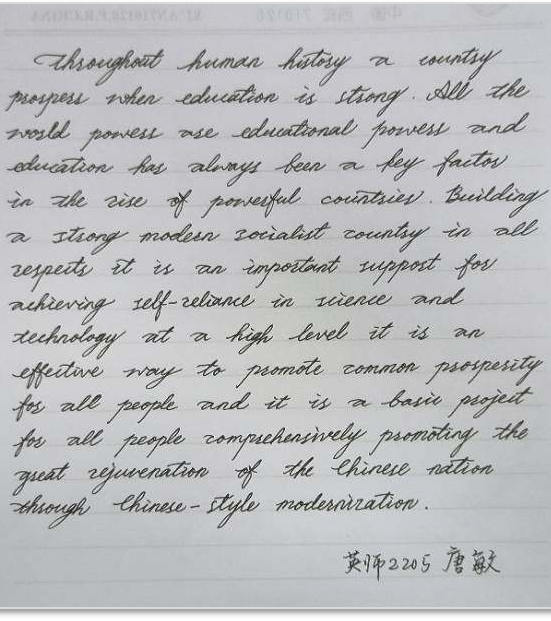 Throughout human history a country
prospers when education is strong. All the
world powers are educational powers and
education has always been a key factor
in the rise of powerful countries. Building
a strong modern socialist country in all
respects it is an important support for
achieving self-reliance in science and
technology at a high level it is an
effective way to promote common prosperity
for all people and it is a basic project
for all people comprehensively promoting the
great rejuvenation of the Chinese nation
through Chinese-style modernization.
英师2205 唐敏